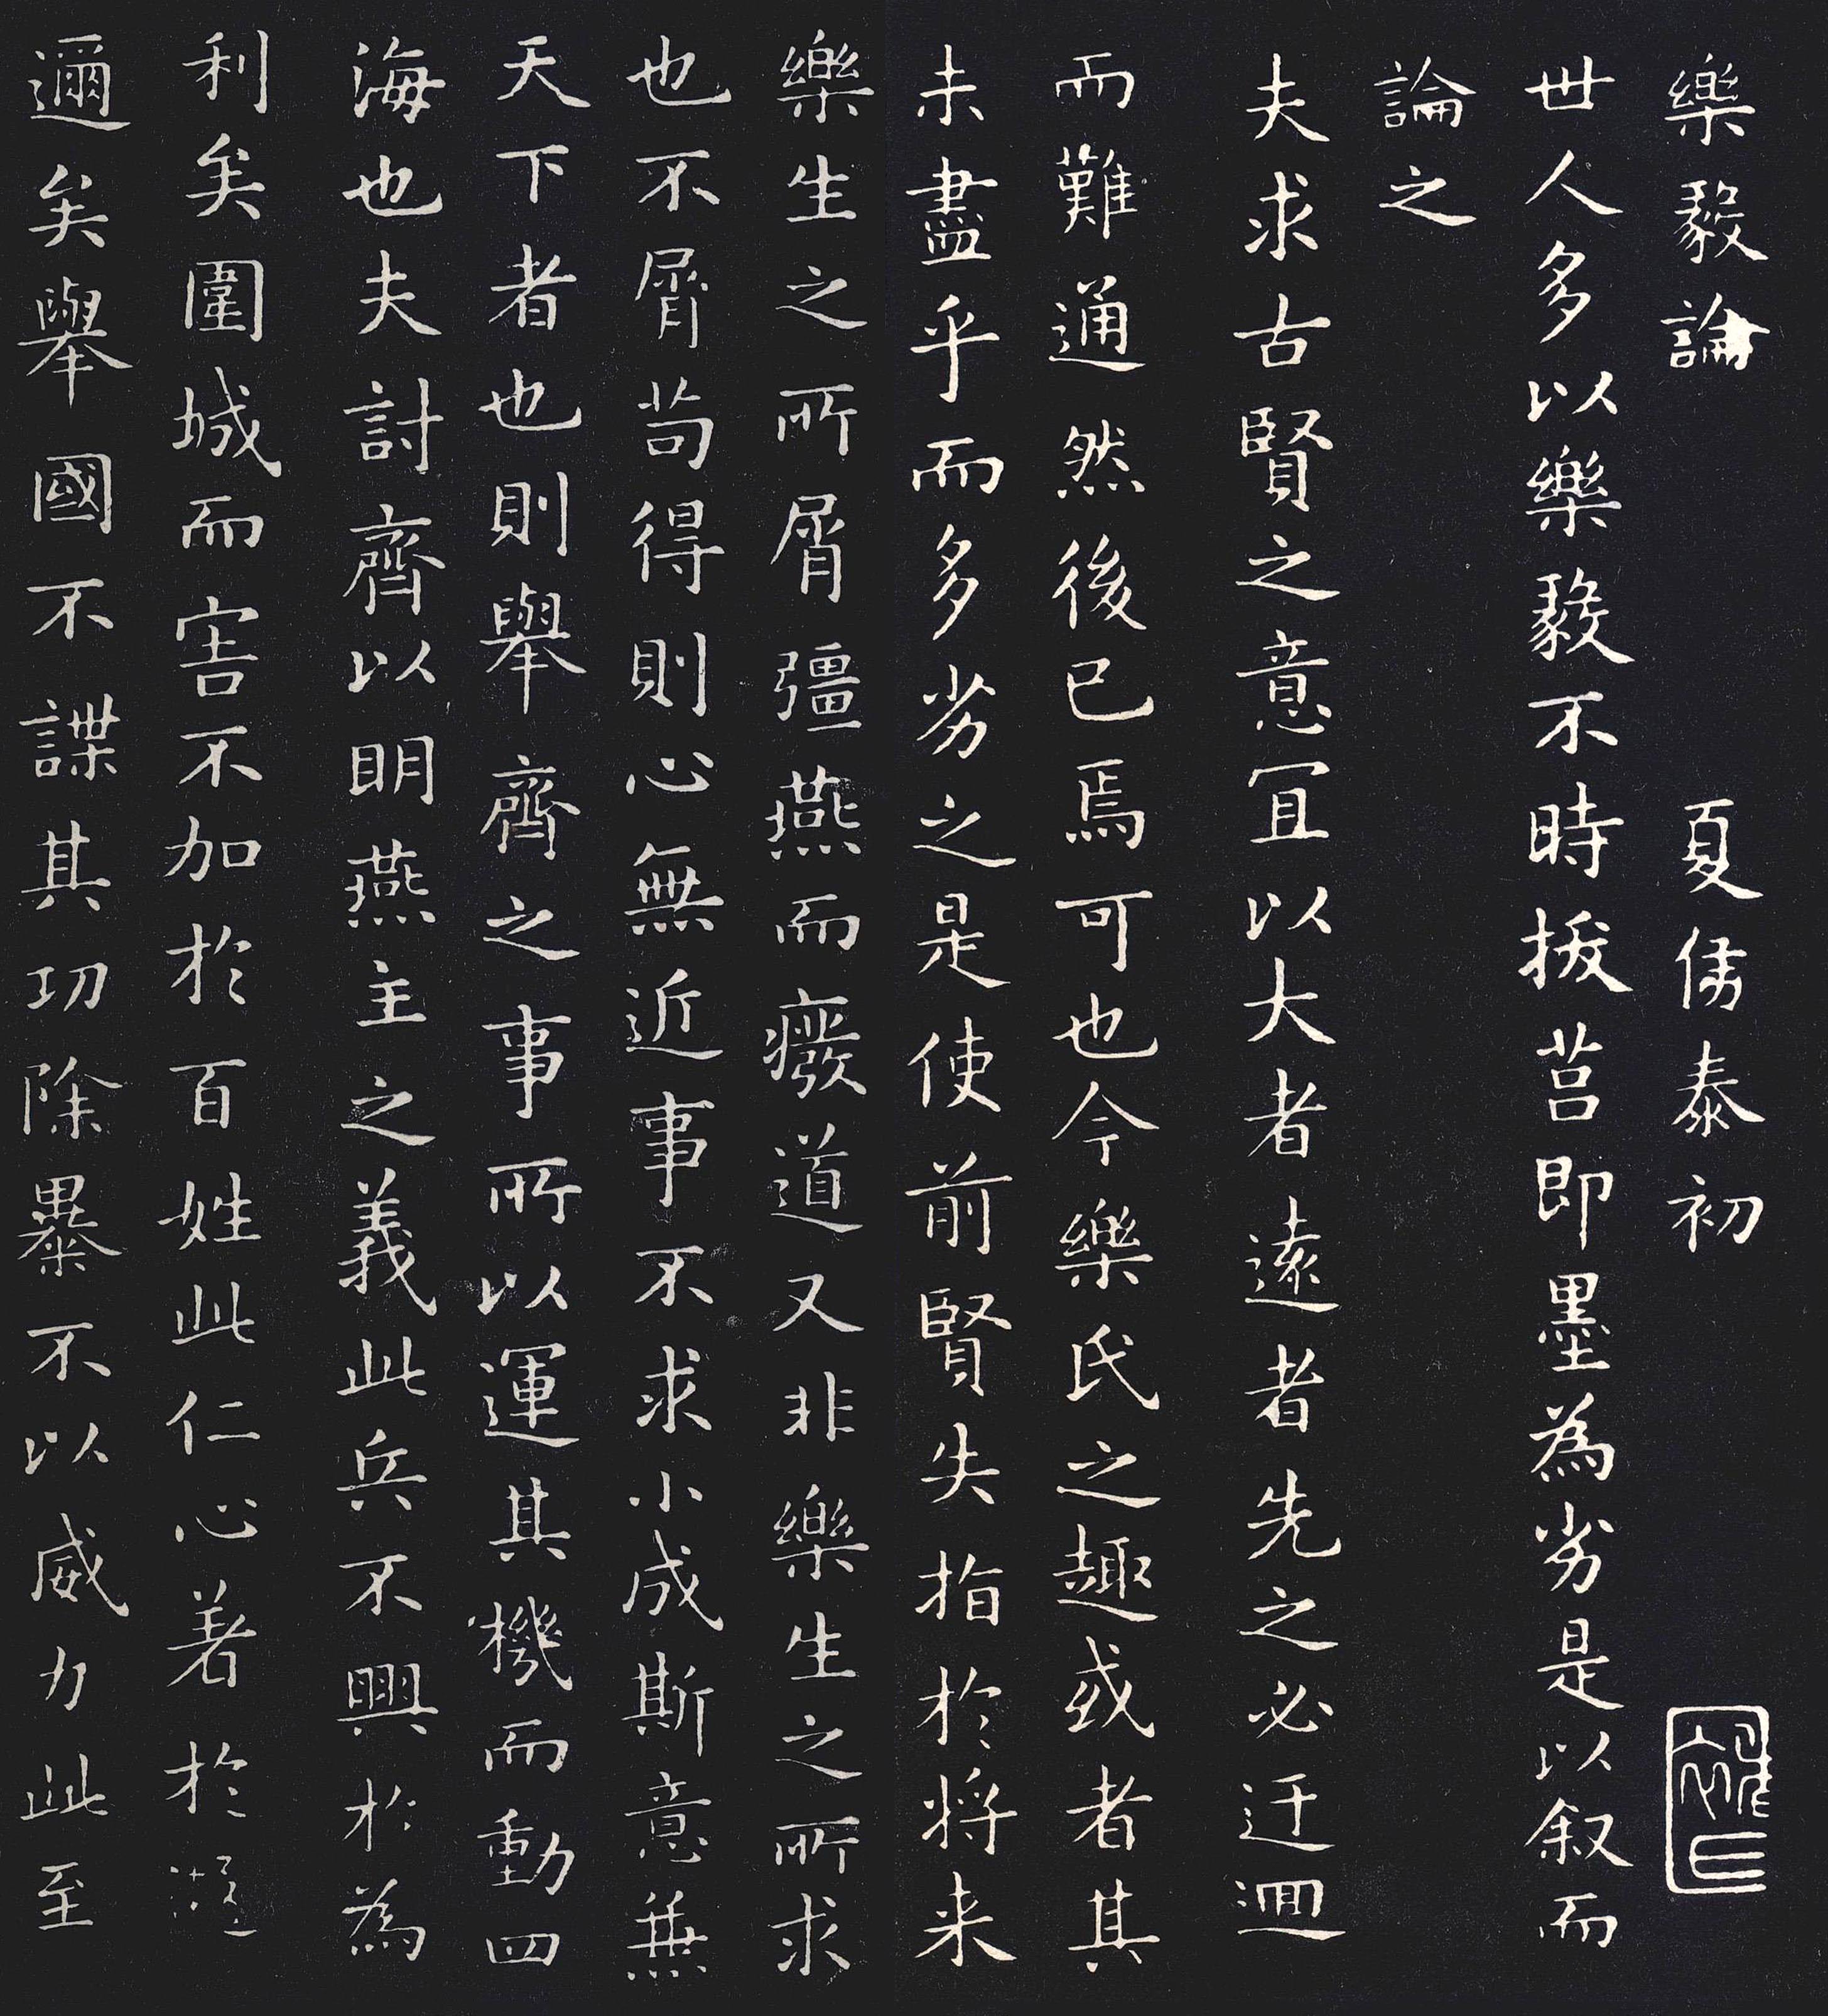 樂毅論 夏侯泰初
世人多以樂毅不時拔莒即墨為劣是以叙而
論之
夫求古賢之意宜以大者遠者先之必迂迴
而難通然後已焉可也今樂氏之趣或者其
未盡乎而多劣之是使前賢失指於將来
樂生之所屑彊燕而癈道又非樂生之所求
也不屑苟得則心無近事不求小成斯意無
天下者也則舉齊之事所以運其機而動四
海也夫討齊以明燕主之義此兵不興於為
利矣圍城而害不加於百姓此仁心著於遐
邇矣舉國不謀其功除暴不以威力此至